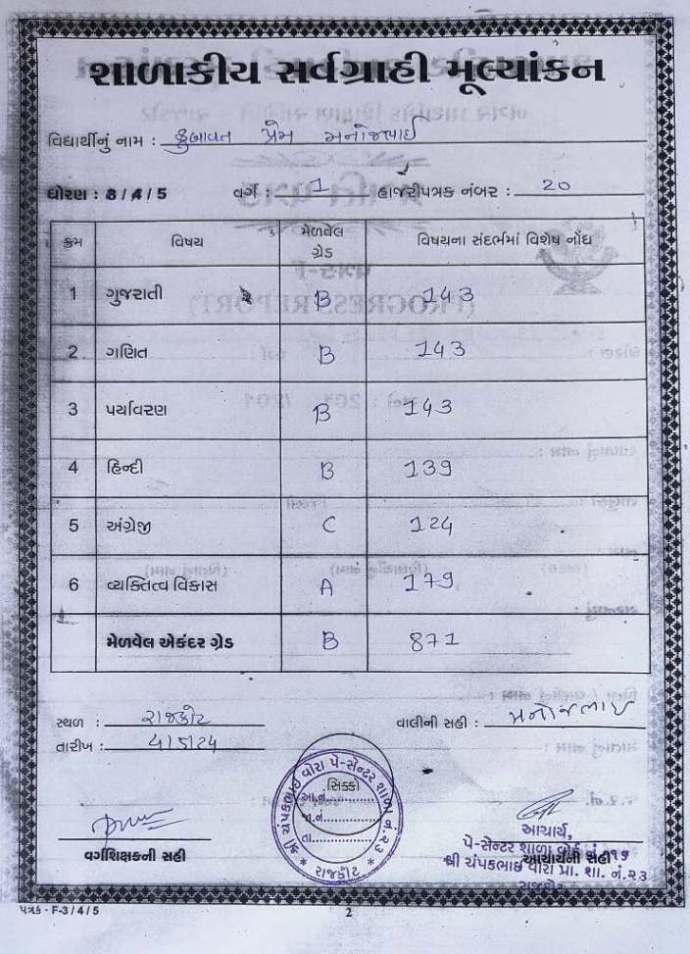 શાળાકીય સર્વગ્રાહી મૂલ્યાંકન
વિદ્યાર્થીનું નામ : કુબાવત પ્રેમ મનોજભાઈ
ધોરણ : 3 / 4 / 5 વર્ગ : 1 હાજરીપત્રક નંબર : 20
ક્રમ વિષય મેળવેલ ગ્રેડ વિષયના સંદર્ભમાં વિશેષ નોંધ
1 ગુજરાતી B 143
2 ગણિત B 143
3 પર્યાવરણ B 143
4 હિન્દી B 139
5 અંગ્રેજી C 124
6 વ્યક્તિત્વ વિકાસ A 179
મેળવેલ એકંદર ગ્રેડ B 871
સ્થળ : રાજકોટ વાલીની સહી : મનોજભાઇ
તારીખ : 4/5/24
શ્રી ચંપકભાઇ વોરા પે-સેન્ટર શાળા નં.૨૩
સિક્કો
આ.નં.
જા.નં
તા.
રાજકોટ
વર્ગશિક્ષકની સહી
આચાર્ય,
પે-સેન્ટર શાળા
આચાર્યની સહી
શ્રી ચંપકભાઇ વોરા પ્રા. શા. નં.૨૩
રાજકોટ
પત્રક - F-3 / 4 / 5 2